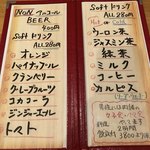 NON アルコール
BEER
400円
Soft ドリンク
ALL 280円
オレンジ
パイナップル
クランベリー
グレープフルーツ
コカコーラ
ジンジャーエール
トマト
Soft ドリンク
ALL 280円
Hot or Cold
ウーロン茶
ジャスミン茶
緑茶
ミルク
コーヒー
カルピス
2時間